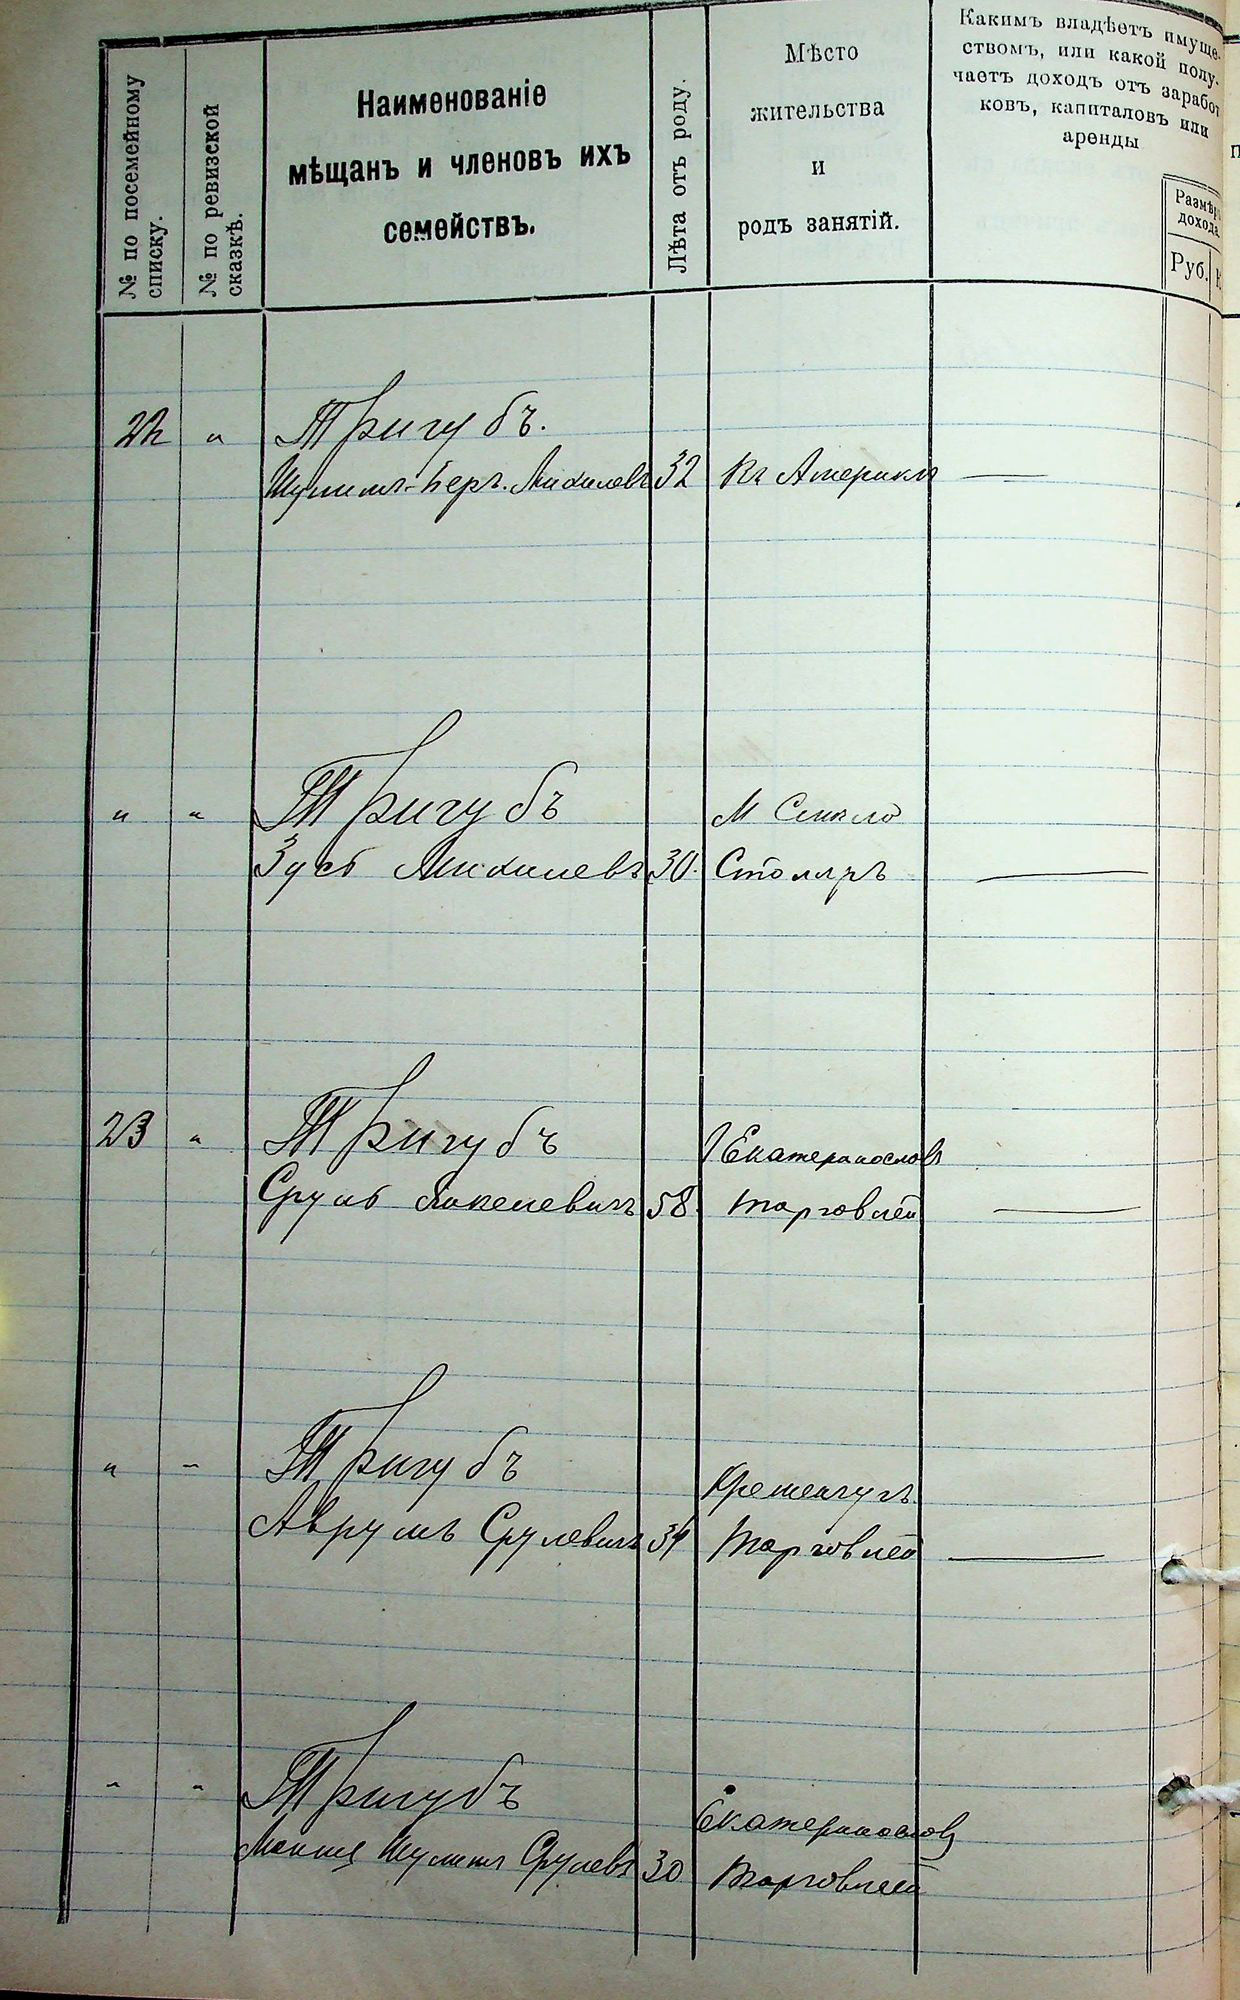 № по посемейному
списку.
№ по ревизской
сказкѣ.
Наименованіе
мѣщанъ и членовъ ихъ
семействъ.
Лѣта отъ роду.
Мѣсто
жительства
и
родъ занятій.
Какимъ владѣетъ имуще-
ствомъ, или какой полу-
чаетъ доходъ отъ заработ
ковъ, капиталовъ или
аренды
Размѣръ
дохода
Руб.
22 " Тригубъ.
Шулимъ-Беръ. 32 Въ Америкѣ
" " Тригубъ М Смѣло
Зусь 30. Столяръ
23 " Тригубъ Екатеринославъ
Сруль 58. торговлей
" " Тригубъ Кременчугъ
Аврумъ Срулевичъ 34 торговлей
" " Тригубъ Екатеринославъ
Шулимъ Срулевъ 30 торговлей